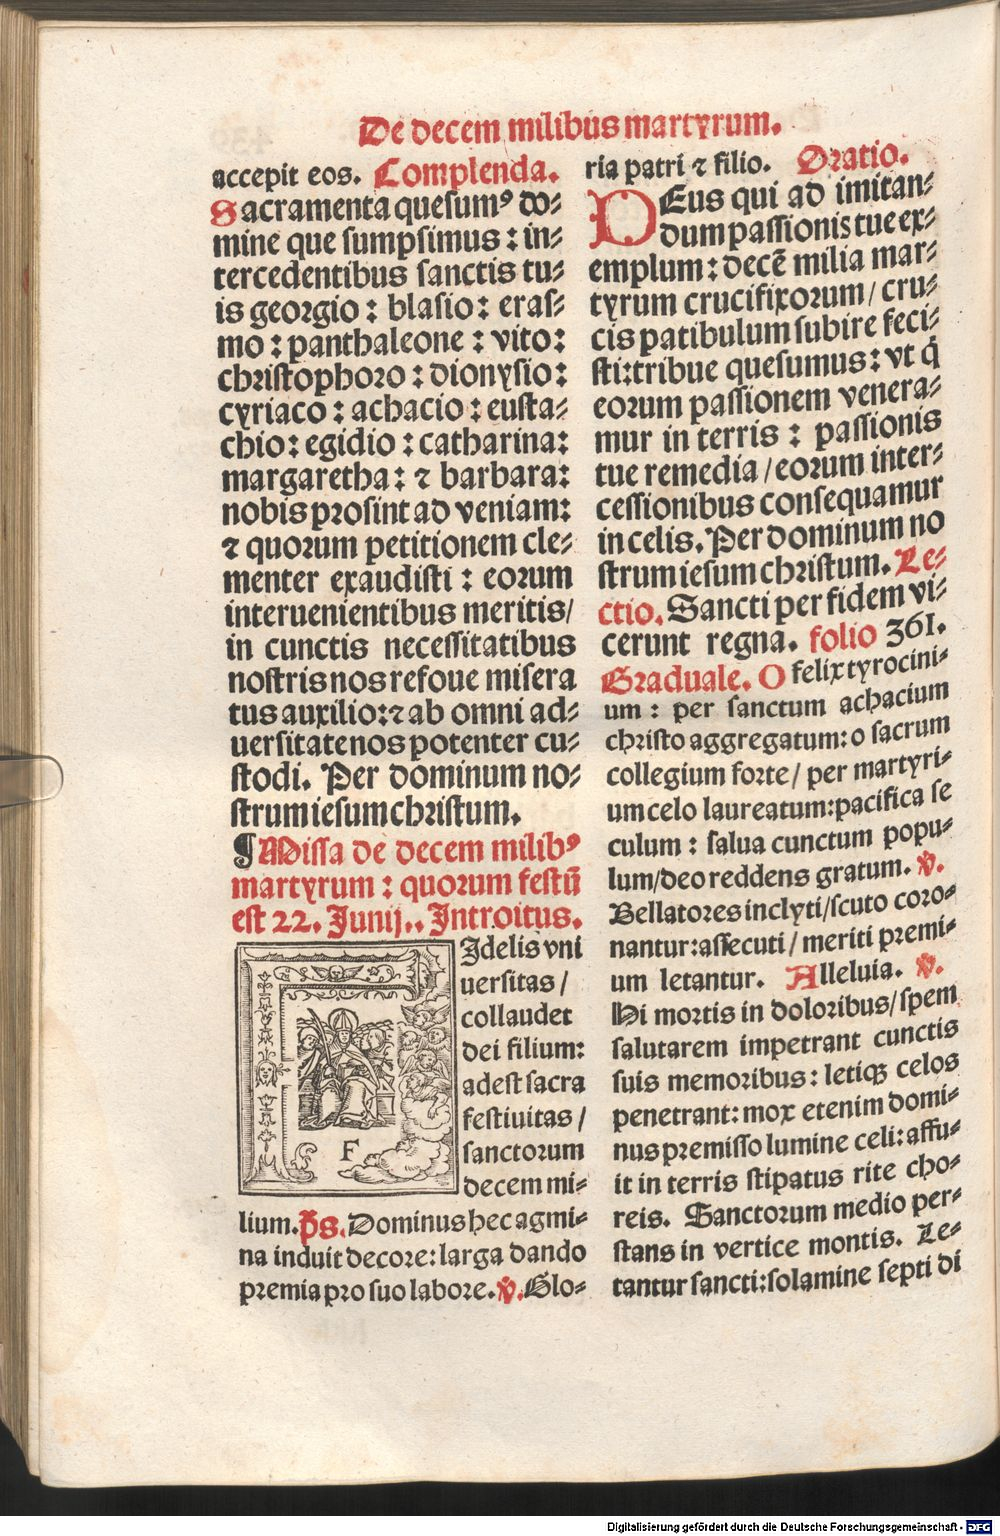 De decem milibus martyrum.
accepit eos. Complenda.
Sacramenta quesumꝰ do⸗
mine que sumpsimus : in⸗
tercedentibus sanctis tu⸗
is georgio : blasio : eras⸗
mo : panthaleone : vito :
christophoro : dionysio :
cyriaco : achacio : eusta⸗
chio : egidio : catharina :
margaretha : ⁊ barbara :
nobis prosint ad veniam :
⁊ quorum petitionem cle⸗
menter exaudisti : eorum
interuenientibus meritis/
in cunctis necessitatibus
nostris nos refoue misera
tus auxilio: ⁊ ab omni ad⸗
uersitate nos potenter cu⸗
stodi. Per dominum no⸗
strum iesum christum.
¶ Missa de decem milibꝰ
martyrum : quorum festū
est 22. Junij.. Introitus.
FIdelis vni
uersitas /
collaudet
dei filium:
adest sacra
festiuitas /
sanctorum
decem mi⸗
F
lium. ps. Dominus hec agmi⸗
na induit decore: larga dando
premia pro suo labore. v̄. Glo⸗
ria patri ⁊ filio. Oratio.
DEus qui ad imitan⸗
dum passionis tue ex⸗
emplum : decē milia mar⸗
tyrum crucifixorum/ cru⸗
cis patibulum subire feci⸗
sti: tribue quesumus : vt q̄
eorum passionem venera⸗
mur in terris : passionis
tue remedia / eorum inter⸗
cessionibus consequamur
in celis. Per dominum no
strum iesum christum. Le⸗
ctio. Sancti per fidem vi⸗
cerunt regna. folio 361.
Graduale. O felix tyrocini⸗
um : per sanctum achacium
christo aggregatum: o sacrum
collegium forte/ per martyri⸗
um celo laureatum: pacifica se
culum : salua cunctum popu⸗
lum/ deo reddens gratum. v̄.
Bellatores inclyti/ scuto coro⸗
nantur: assecuti / meriti premi⸗
um letantur. Alleluia. v̄.
Hi mortis in doloribus/ spem
salutarem impetrant cunctis
suis memoribus : letiqꝫ celos
penetrant: mox etenim domi⸗
nus premisso lumine celi: affu⸗
it in terris stipatus rite cho⸗
reis. Sanctorum medio per⸗
stans in vertice montis. Le⸗
tantur sancti: solamine septi di
Digitalisierung gefördert durch die Deutsche Forschungsgemeinschaft - DFG